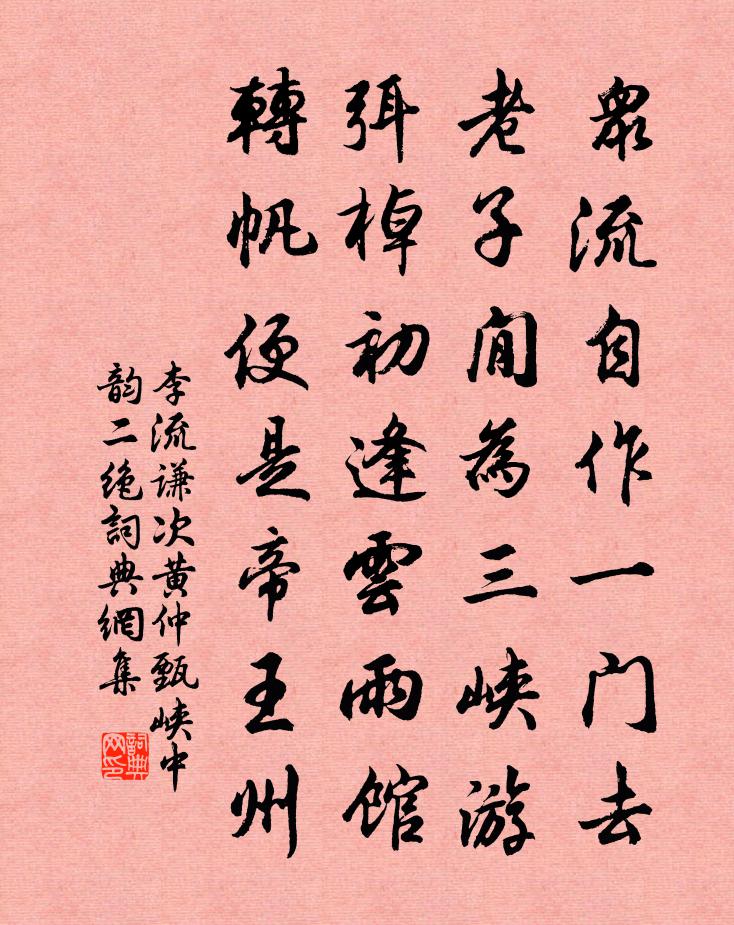 眾流自作一门去
老子閒為三峡游
弭棹初逢雲雨館
轉帆便是帝王州
李流谦次黄仲甄峡中
韵二绝詞典網集
詞典網印